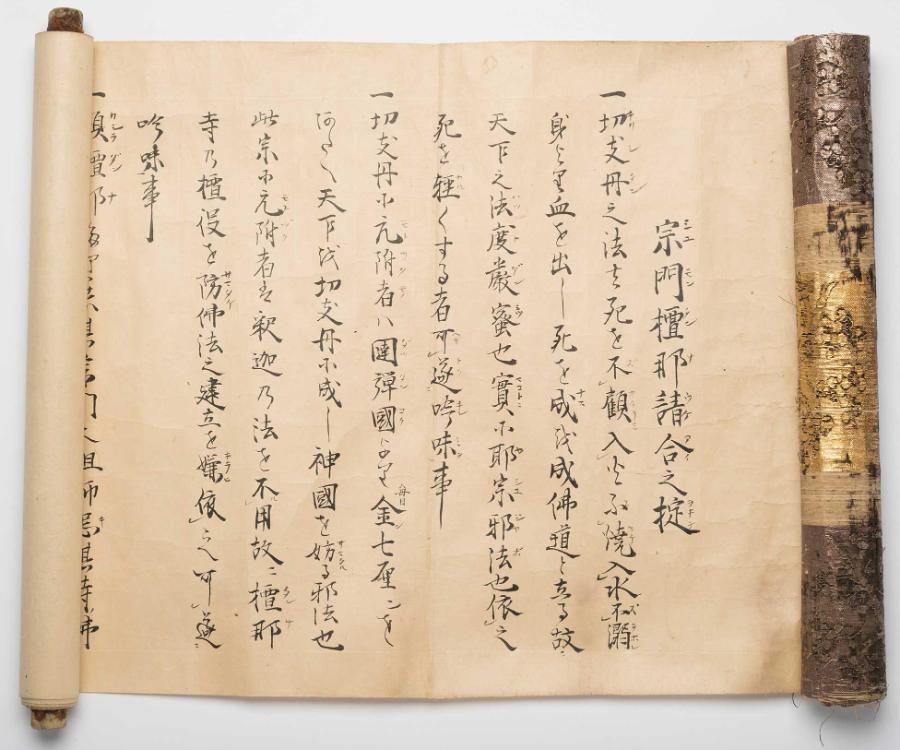 宗門檀那請合之掟
一切支丹之法者死を不顧入火不焼入水不溺
身より血を出し死を成を成佛道と立る故ニ
天下之法度嚴蜜也實に耶宗邪法也依之
死を軽くする者可遂吟味事
一切支丹に元附者ハ彈國より毎日金七厘を
あたへ天下を切支丹に成し神國を妨る邪法也
此宗に元附者は釈迦乃法を不用故ニ檀那
寺乃檀役を防佛法之建立を嫌依之可遂
吟味事
一頭檀那 其宗門之祖師忌其寺佛